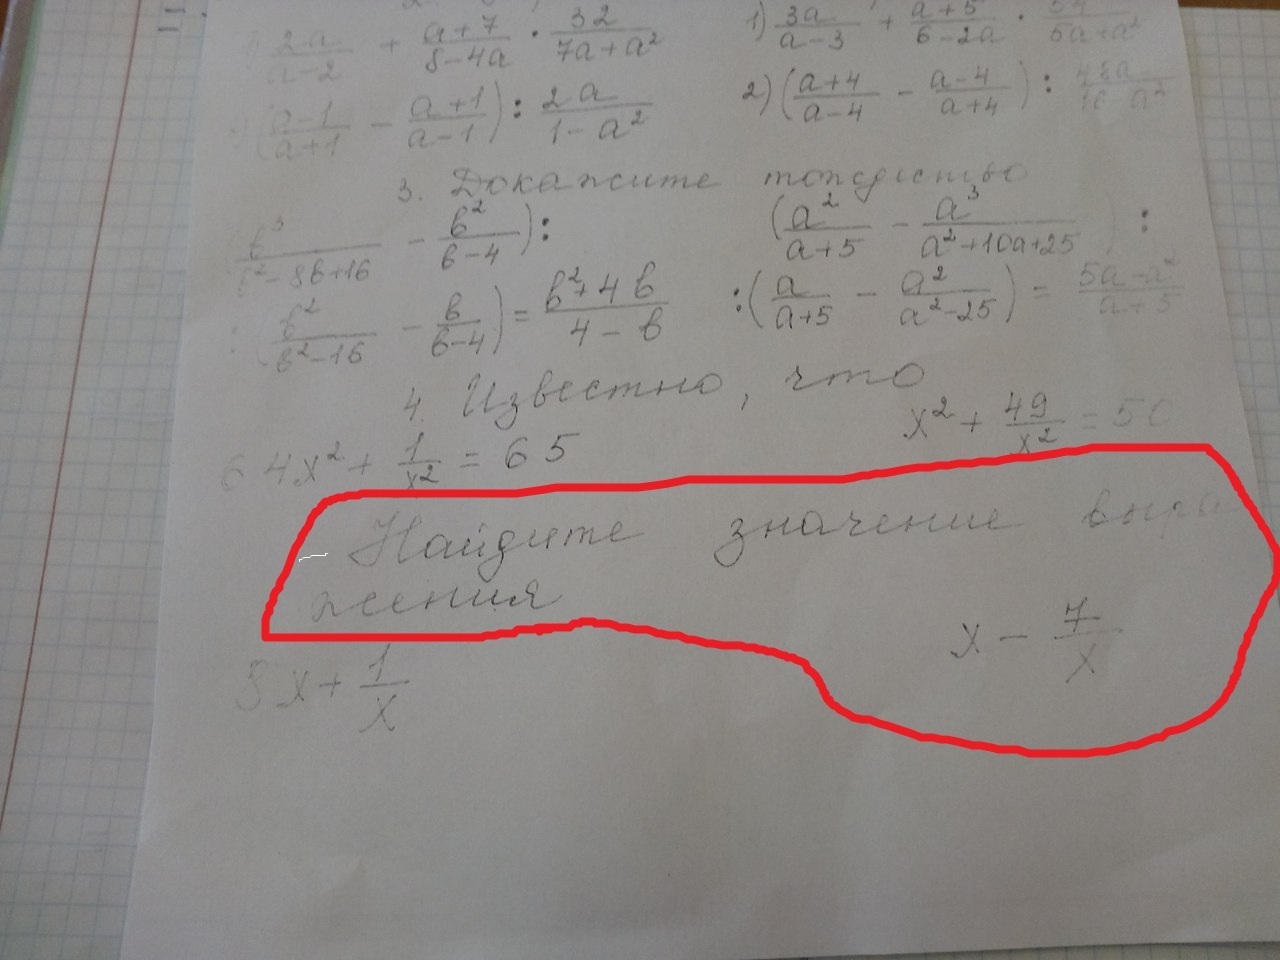 \frac{2a}{a-2} + \frac{a+7}{8-4a} \cdot \frac{32}{7a+a^2}
1) \frac{3a}{a-3} + \frac{a+5}{6-2a} \cdot \frac{54}{5a+a^2}
(\frac{a-1}{a+1} - \frac{a+1}{a-1}) : \frac{2a}{1-a^2}
2) (\frac{a+4}{a-4} - \frac{a-4}{a+4}) : \frac{48a}{16-a^2}
3. Докажите тождество
\frac{b^3}{b^2-8b+16} - \frac{b^2}{b-4}) :
(\frac{a^2}{a+5} - \frac{a^3}{a^2+10a+25}) :
: (\frac{b^2}{b^2-16} - \frac{b}{b-4}) = \frac{b^2+4b}{4-b}
: (\frac{a}{a+5} - \frac{a^2}{a^2-25}) = \frac{5a-a^2}{a+5}
4. Известно, что
64x^2 + \frac{1}{x^2} = 65
x^2 + \frac{49}{x^2} = 50
Найдите значение выра
жения
8x + \frac{1}{x}
x - \frac{7}{x}